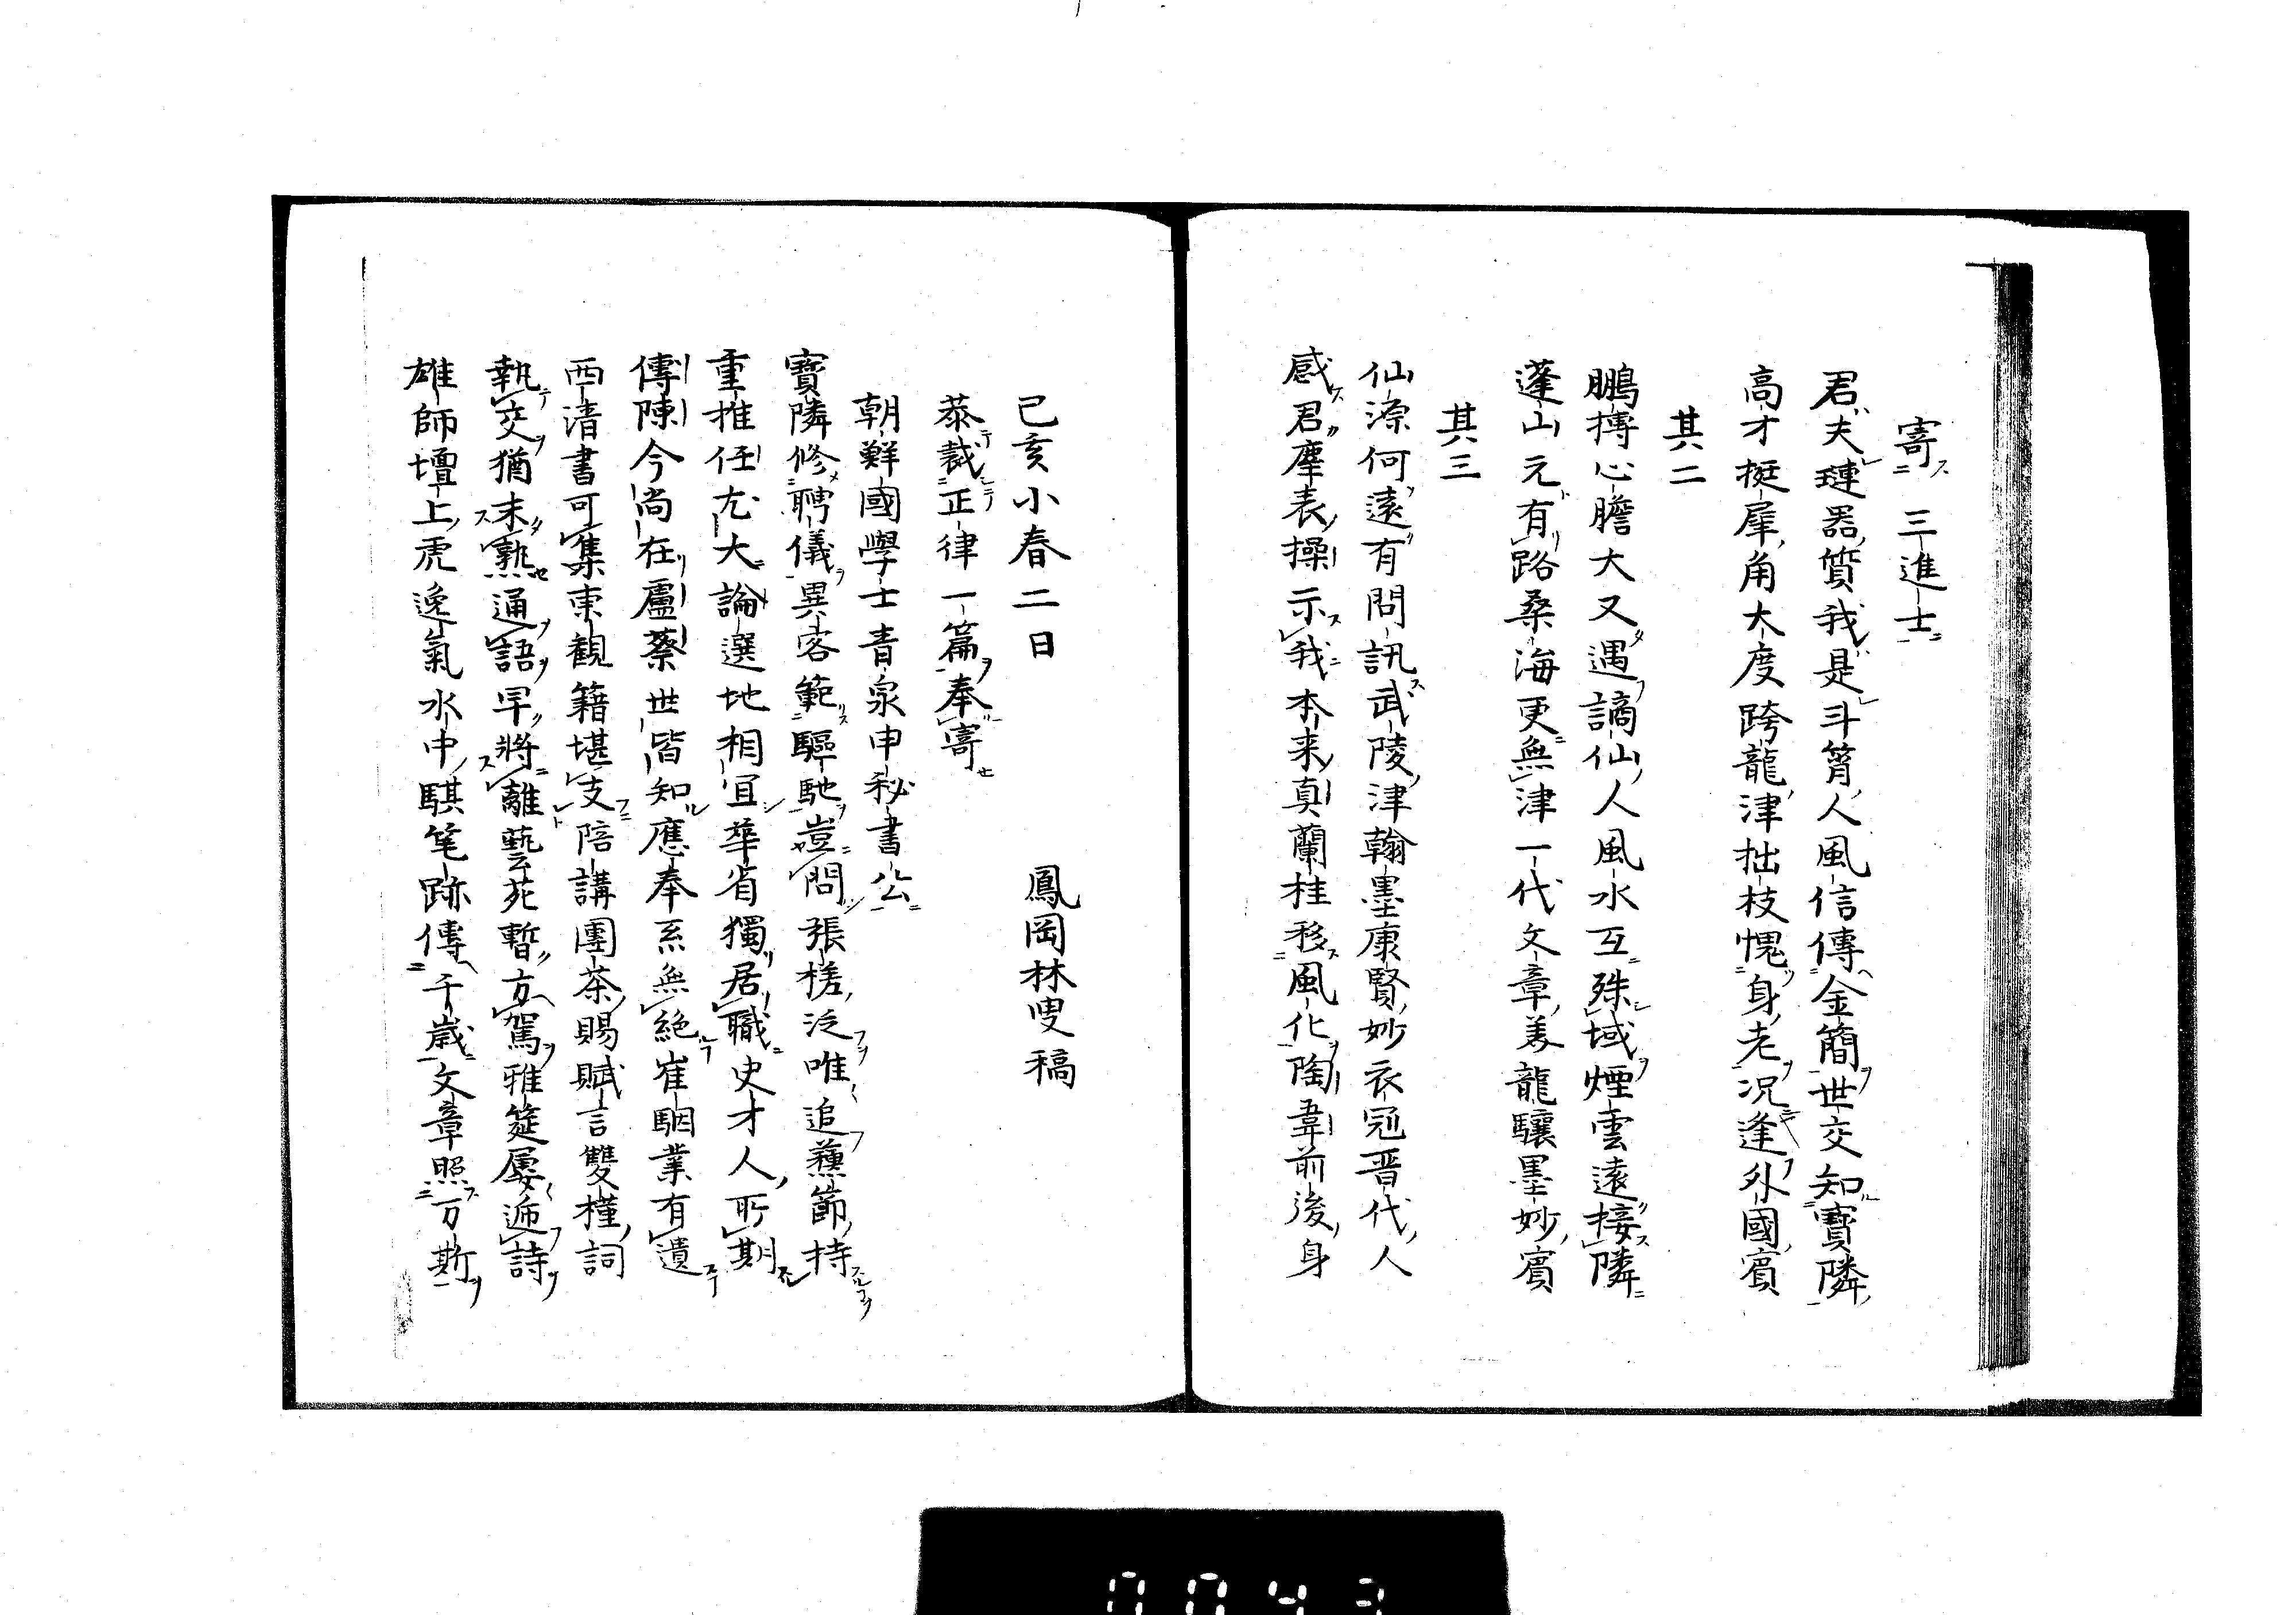 寄三進士
君夫璉器質我是斗筲人風信傳金簡世交知寶隣
高才挺犀角大度跨龍津拙枝愧身老况逢外國賓
其二
鵬摶心膽大又遇謫仙人風水互殊域煙雲遠接隣
蓬山元有路桑海更無津一代文章美龍驤墨妙賓
其三
仙源何遠有問訊武陵津翰墨康賢妙衣冠晋代人
感君塵表操示我本来真蘭桂移風化陶韋前後身
己亥小春二日　鳳岡林叟稿
恭裁正律一篇奉寄
朝鮮國學士青泉申秘書公
寶隣修聘儀異客範驅馳豈問張槎泛唯追蘓節持
重推任尤大論選地相宜華省獨居職史才人所期
傳陳今尚在廬蔡世皆知應奉系無絕崔駰業有遺
西清書可集東觀籍堪支陪講團茶賜賦言雙槿詞
執交猶未熟通語早將離藝苑暫方駕雅筵屡遞詩
雄師壇上虎逸氣水中騏笔跡傳千歳文章照万斯
0043